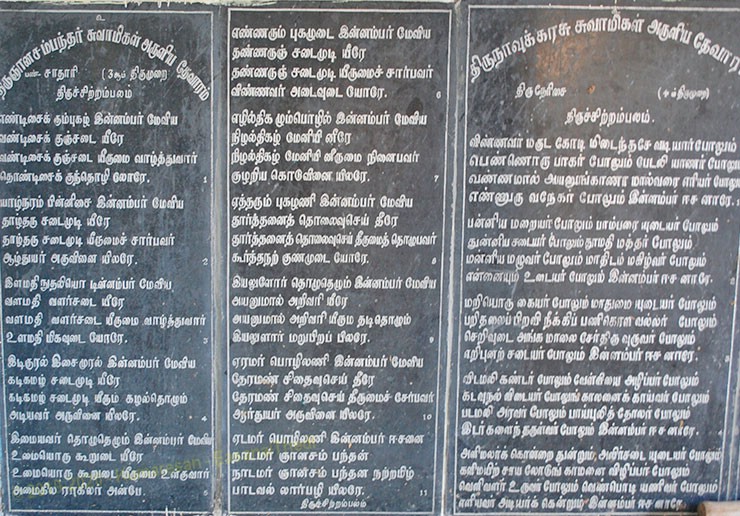 உ
திருஞானசம்பந்தர் சுவாமிகள் அருளிய தேவாரம்
பண். சாதாரி (3ஆம் திருமுறை)
திருச்சிற்றம்பலம்
எண்டிசைக் கும்புகழ் இன்னம்பர் மேவிய
வண்டிசைக் குஞ்சடை யீரே
வண்டிசைக் குஞ்சடை யீருமை வாழ்த்துவார்
தொண்டிசைக் குந்தொழி லோரே. 1
யாழ்நரம் பின்னிசை இன்னம்பர் மேவிய
தாழ்தரு சடைமுடி யீரே
தாழ்தரு சடைமுடி யீருமைச் சார்பவர்
ஆழ்துயர் அருவினை யிலரே. 2
இளமதி நுதலியொ டின்னம்பர் மேவிய
வளமதி வளர்சடை யீரே
வளமதி வளர்சடை யீருமை வாழ்த்துவார்
உளமதி மிகவுடை யோரே. 3
இடிகுரல் இசைமுரல் இன்னம்பர் மேவிய
கடிகமழ் சடைமுடி யீரே
கடிகமழ் சடைமுடி யீரும கழல்தொழும்
அடியவர் அருவினை யிலரே. 4
இமையவர் தொழுதெழும் இன்னம்பர் மேவிய
உமையொரு கூறுடை யீரே
உமையொரு கூறுடை யீருமை உள்குவார்
அமைகில ராகிலர் அன்பே. 5
எண்ணரும் புகழுடை இன்னம்பர் மேவிய
தண்ணருஞ் சடைமுடி யீரே
தண்ணருஞ் சடைமுடி யீருமைச் சார்பவர்
விண்ணவர் அடைவுடை யோரே. 6
எழில்திக ழும்பொழில் இன்னம்பர் மேவிய
நிழல்திகழ் மேனியி னீரே
நிழல்திகழ் மேனியி னீருமை நினைபவர்
குழறிய கொடுவினை யிலரே. 7
ஏத்தரும் புகழணி இன்னம்பர் மேவிய
தூர்த்தனைத் தொலைவுசெய் தீரே
தூர்த்தனைத் தொலைவுசெய் தீருமைத் தொழுபவர்
கூர்த்தநற் குணமுடை யோரே. 8
இயலுளோர் தொழுதெழும் இன்னம்பர் மேவிய
அயனுமால் அறிவரி யீரே
அயனுமால் அறிவரி யீரும தடிதொழும்
இயலுளார் மறுபிறப் பிலரே. 9
ஏரமர் பொழிலணி இன்னம்பர் மேவிய
தேரமண் சிதைவுசெய் தீரே
தேரமண் சிதைவுசெய் தீருமைச் சேர்பவர்
ஆர்துயர் அருவினை யிலரே. 10
ஏடமர் பொழிலணி இன்னம்பர் ஈசனை
நாடமர் ஞானசம் பந்தன்
நாடமர் ஞானசம் பந்தன நற்றமிழ்
பாடவல் லார்பழி யிலரே. 11
திருச்சிற்றம்பலம்
திருநாவுக்கரசு சுவாமிகள் அருளிய தேவாரம்
திருநேரிசை (4ம்திருமுறை)
திருச்சிற்றம்பலம்.
விண்ணவர் மகுட கோடி மிடைந்தசே வடியார்போலும்
பெண்ணொரு பாகர் போலும் பேடலி யாணர் போலும்
வண்ணமால் அயனுங்காணா மால்வரை எரியர் போலும்
எண்ணுரு வநேகர் போலும் இன்னம்பர் ஈச னாரே.
பன்னிய மறையர் போலும் பாம்பரை யுடையர் போலும்
துன்னிய சடையர் போலும் தூமதி மத்தர் போலும்
மன்னிய மழுவர் போலும் மாதிடம் மகிழ்வர் போலும்
என்னையும் உடையர் போலும் இன்னம்பர் ஈச னாரே.
மறியொரு கையர் போலும் மாதுமை யுடையர் போலும்
பறிதலைப்பிறவி நீக்கிப் பணிகொள வல்லர் போலும்
செறிவுடை அங்க மாலை சேர்திரு வுருவர் போலும்
எறிபுனற் சடையர் போலும் இன்னம்பர் ஈச னாரே.
விடமலி கண்டர் போலும் வேள்வியை அழிப்பர் போலும்
கடவுநல் விடையர் போலும் காலனைக் காய்வர் போலும்
படமலி அரவர் போலும் பாய்புலித் தோலர் போலும்
இடர்களைந் தருள்வர் போலும் இன்னம்பர் ஈச னாரே.
அளிமலர்க் கொன்றை துன்றும் அவிர்சடை யுடையர் போலும்
களிமயிற் சாய லோடுங் காமனை விழிப்பர் போலும்
வெளிவளர் உருவர் போலும் வெண்பொடி யணிவர் போலும்
எளியவர் அடியர்க் கென்றும் இன்னம்பர் ஈச னாரே.